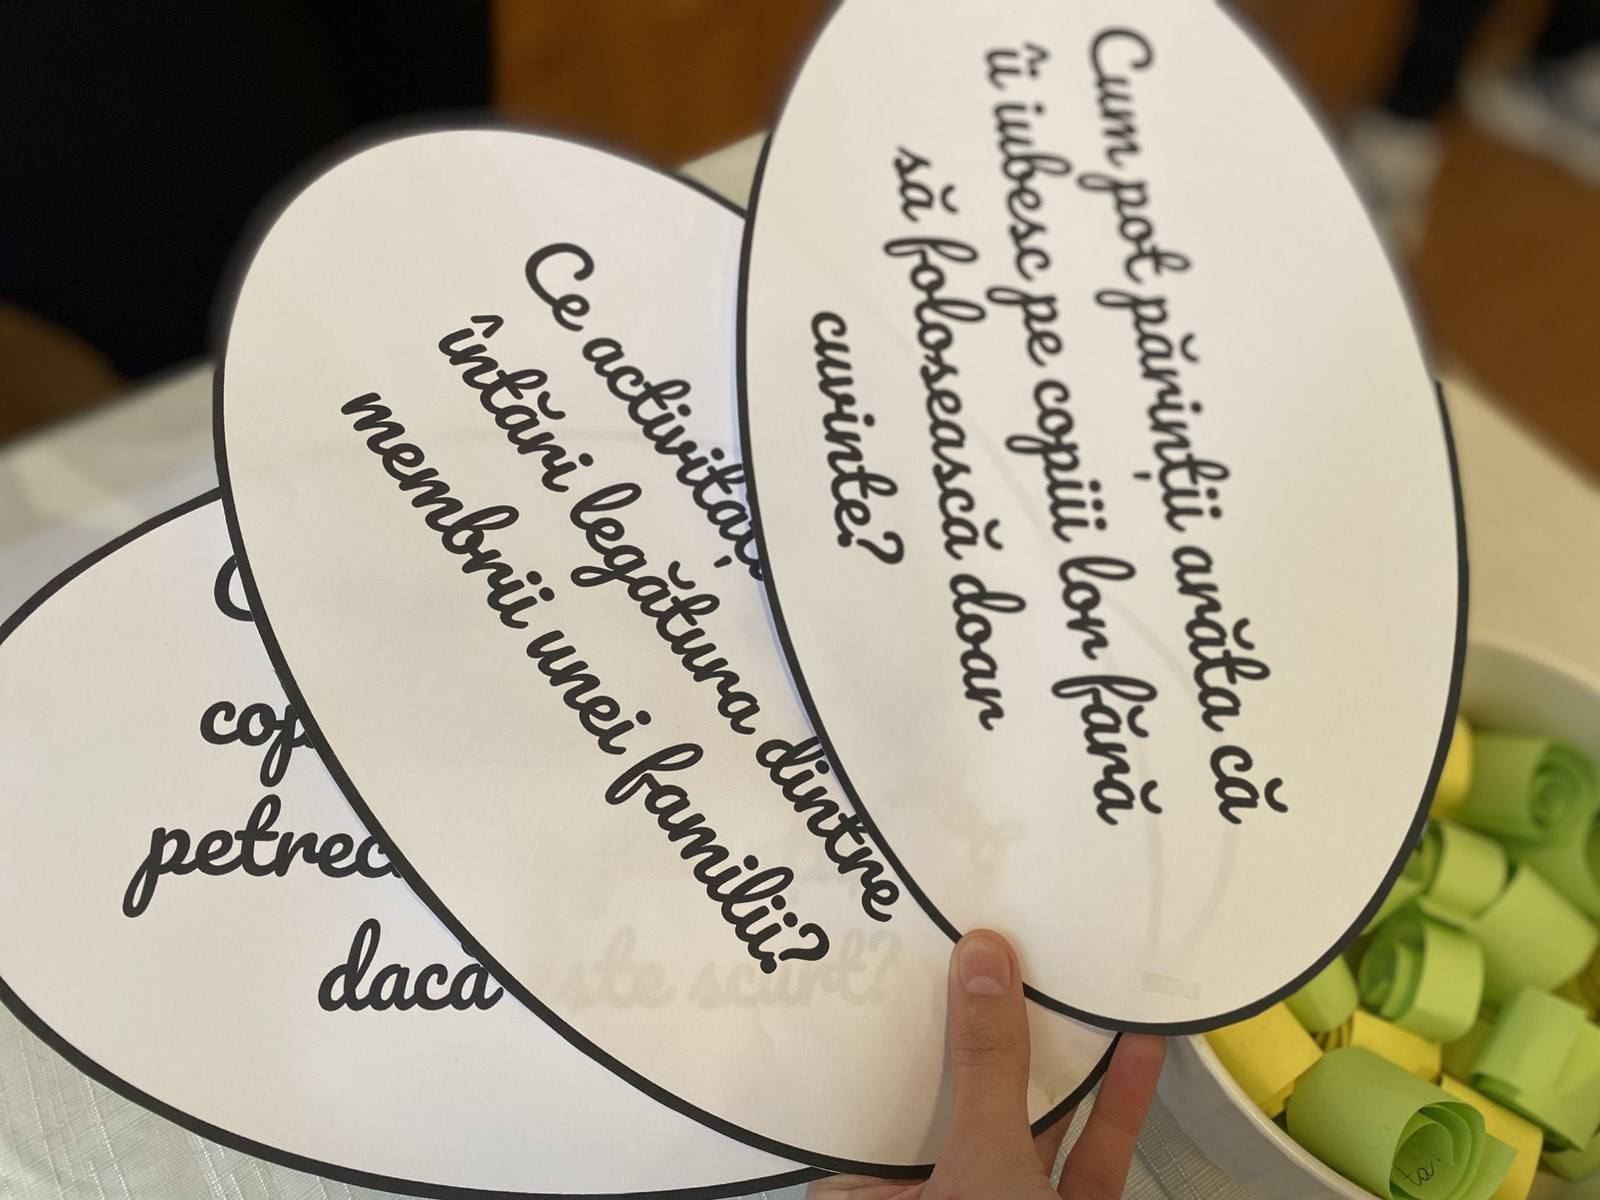 Cum pot părinții arăta că
îi iubesc pe copiii lor fără
să folosească doar
cuvinte?
Ce activități
întări legătura dintre
membrii unei familii?
petrec
dacă
este scurt?
ta.